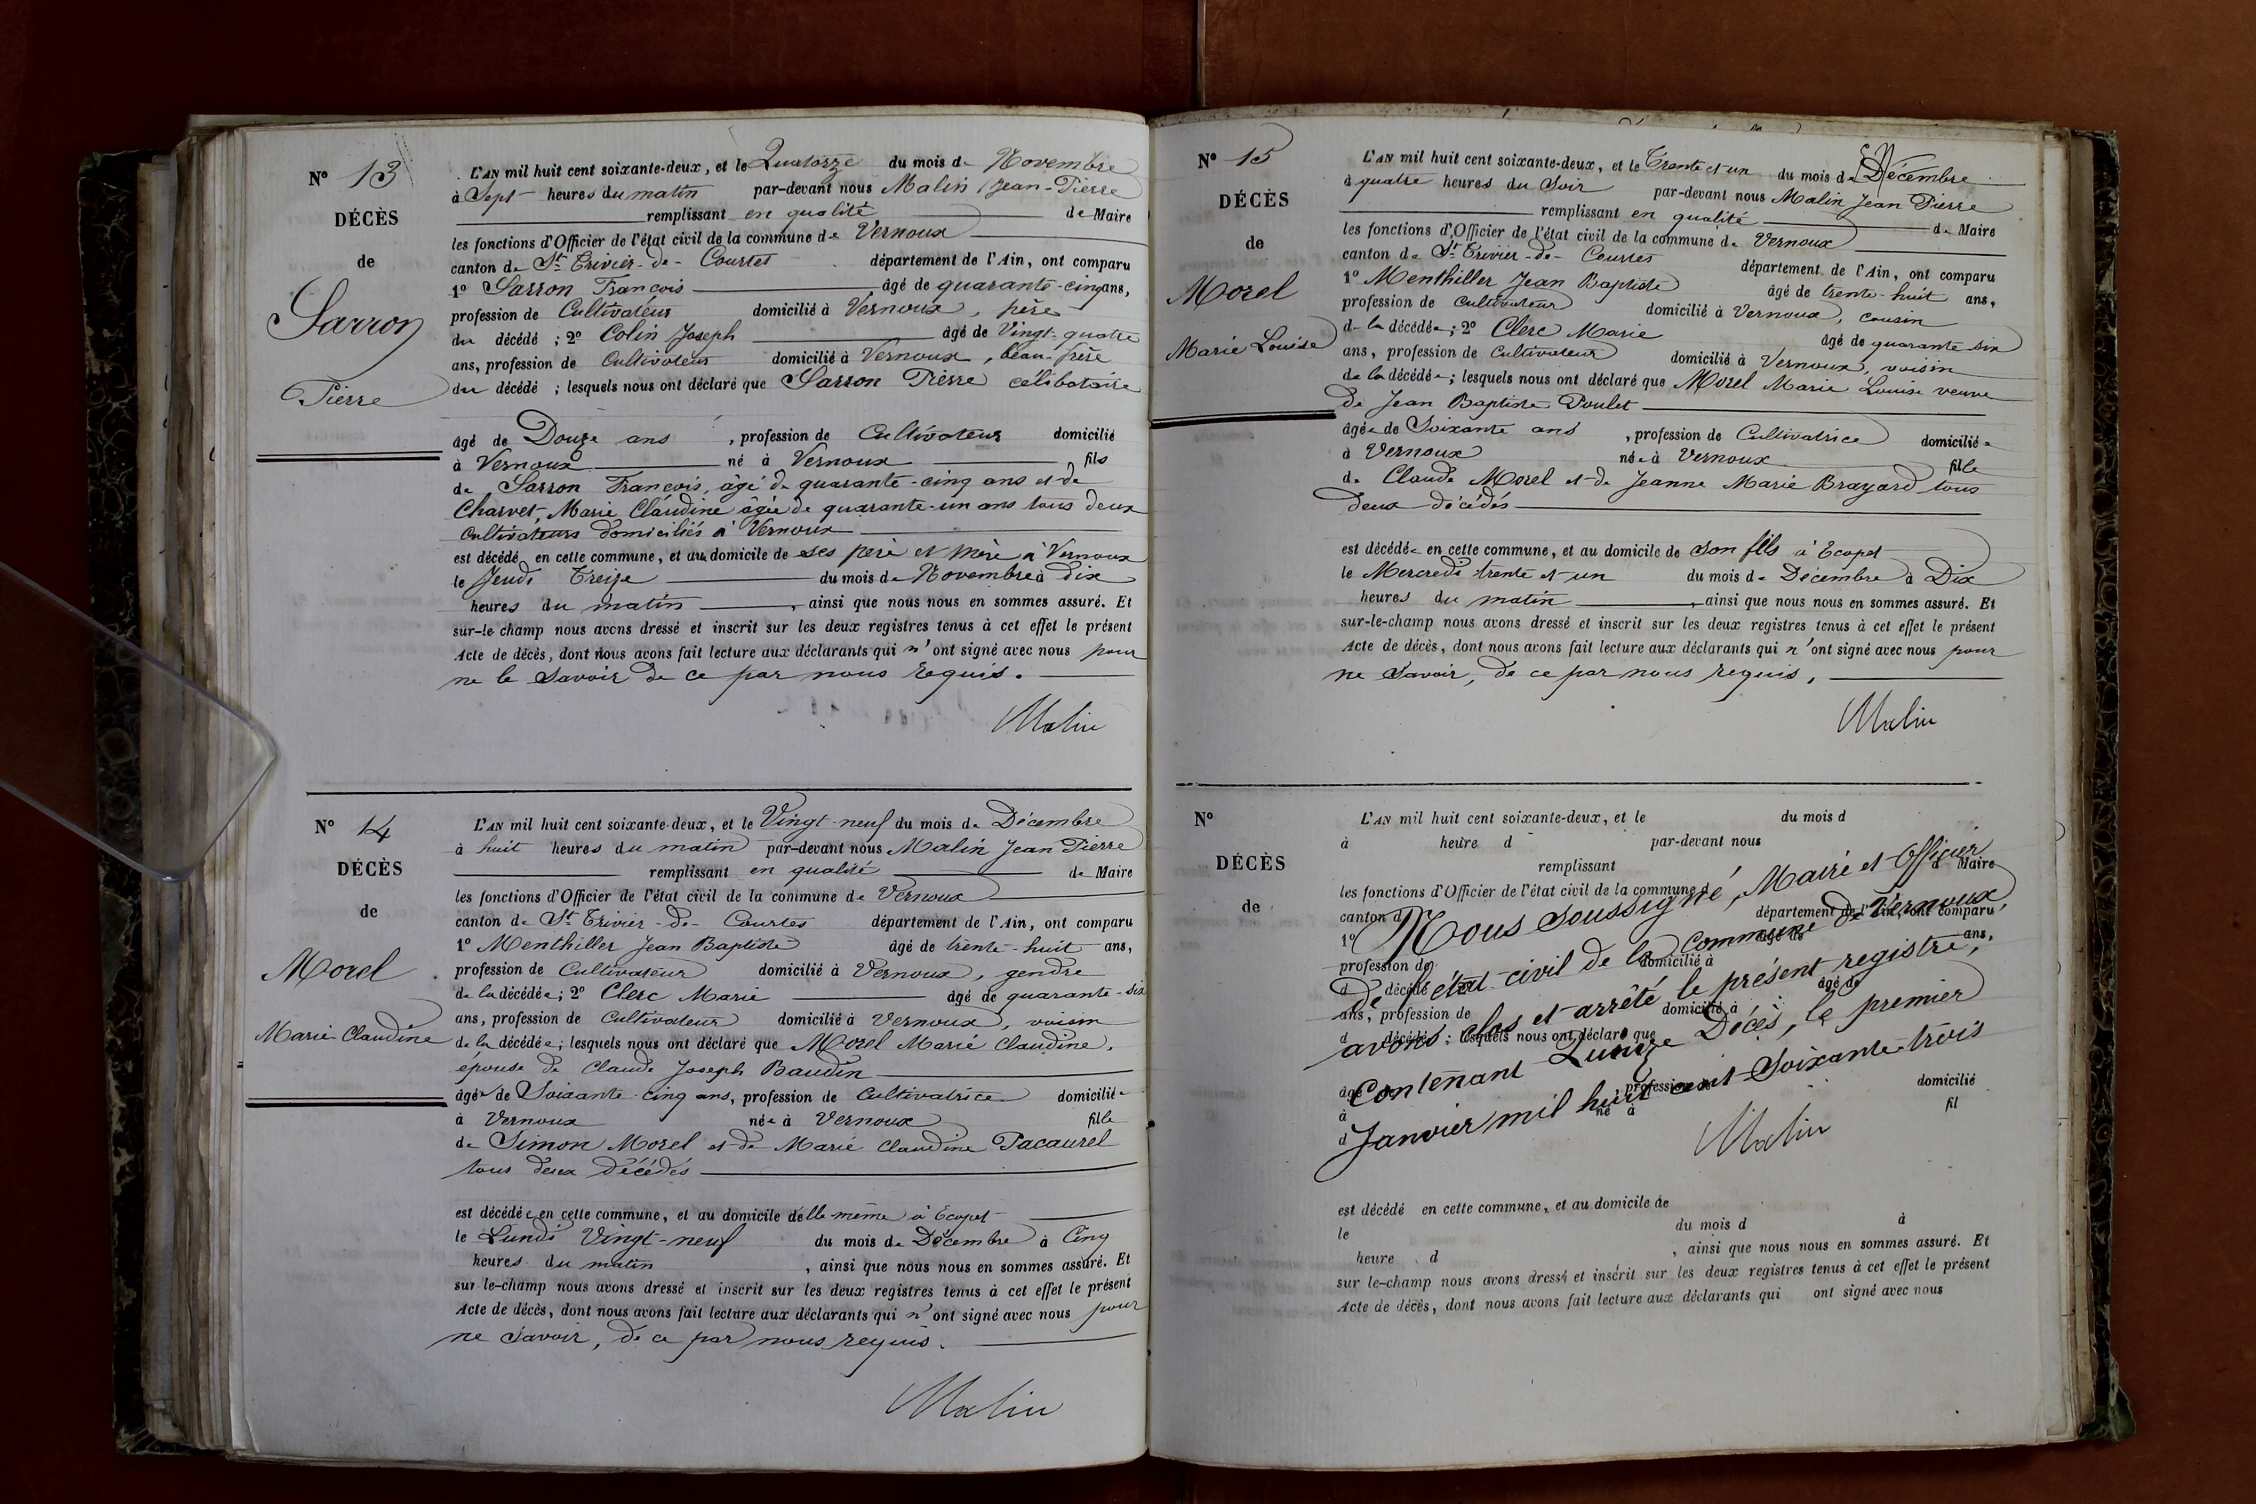 N° 13
DÉCÈS
de
Sarron
Pierre
L'AN mil huit cent soixante-deux, et le Quatorze du mois de Novembre
à Sept heures du matin par-devant nous Malin Jean-Pierre
remplissant en qualité de Maire
les fonctions d'Officier de l'état civil de la commune de Vernoux
canton de St Trivier-de-Courtes département de l'Ain, ont comparu
1° Sarron François âgé de quarante-cinq ans,
profession de Cultivateur domicilié à Vernoux, père
du décédé ; 2° Colin Joseph âgé de Vingt-quatre
ans, profession de Cultivateur domicilié à Vernoux, beau-frère
du décédé ; lesquels nous ont déclaré que Sarron Pierre célibataire
âgé de Douze ans, profession de Cultivateur domicilié
à Vernoux né à Vernoux fils
de Sarron François, âgé de quarante-cinq ans et de
Charvet, Marie Claudine âgée de quarante-un ans tous deux
Cultivateurs domiciliés à Vernoux
est décédé en cette commune, et au domicile de ses père et mère à Vernoux
le Jeudi Treize du mois de Novembre à dix
heures du matin, ainsi que nous nous en sommes assuré. Et
sur-le champ nous avons dressé et inscrit sur les deux registres tenus à cet effet le présent
Acte de décès, dont nous avons fait lecture aux déclarants qui n'ont signé avec nous pour
ne le Savoir de ce par nous requis.
Malin
N° 14
DÉCÈS
de
Morel
Marie Claudine
L'AN mil huit cent soixante-deux, et le Vingt-neuf du mois de Décembre
à huit heures du matin par-devant nous Malin Jean Pierre
remplissant en qualité de Maire
les fonctions d'Officier de l'état civil de la commune de Vernoux
canton de St Trivier-de-Courtes département de l'Ain, ont comparu
1° Menthiller Jean Baptiste âgé de trente-huit ans,
profession de Cultivateur domicilié à Vernoux, gendre
de la décédée ; 2° Clerc Marie âgé de quarante-six
ans, profession de Cultivateur domicilié à Vernoux, voisin
de la décédée ; lesquels nous ont déclaré que Morel Marie Claudine,
épouse de Claude Joseph Baudin
âgée de Soixante-cinq ans, profession de Cultivatrice domiciliée
à Vernoux née à Vernoux fille
de Simon Morel et de Marie Claudine Pacaurel
tous deux décédés
est décédée en cette commune, et au domicile d'elle même à Ecopet
le Lundi Vingt-neuf du mois de Décembre à Cinq
heures du matin, ainsi que nous nous en sommes assuré. Et
sur le-champ nous avons dressé et inscrit sur les deux registres tenus à cet effet le présent
Acte de décès, dont nous avons fait lecture aux déclarants qui n'ont signé avec nous pour
ne Savoir, de ce par nous requis.
Malin
N° 15
DÉCÈS
de
Morel
Marie Louise
L'AN mil huit cent soixante-deux, et le Trente et un du mois de Décembre
à quatre heures du Soir par-devant nous Malin Jean Pierre
remplissant en qualité de Maire
les fonctions d'Officier de l'état civil de la commune de Vernoux
canton de St Trivier-de-Courtes département de l'Ain, ont comparu
1° Menthiller Jean Baptiste âgé de trente-huit ans,
profession de Cultivateur domicilié à Vernoux, cousin
de la décédée ; 2° Clerc Marie âgé de quarante six
ans, profession de Cultivateur domicilié à Vernoux, voisin
de la décédée ; lesquels nous ont déclaré que Morel Marie Louise veuve
de Jean Baptiste Poulet
âgée de Soixante ans, profession de Cultivatrice domiciliée
à Vernoux née à Vernoux fille
de Claude Morel et de Jeanne Marie Brayard tous
deux décédés
est décédée en cette commune, et au domicile de son fils à Ecopet
le Mercredi trente et un du mois de Décembre à Dix
heures du matin, ainsi que nous nous en sommes assuré. Et
sur-le-champ nous avons dressé et inscrit sur les deux registres tenus à cet effet le présent
Acte de décès, dont nous avons fait lecture aux déclarants qui n'ont signé avec nous pour
ne Savoir, de ce par nous requis,
Malin
N°
DÉCÈS
de
L'AN mil huit cent soixante-deux, et le du mois d
à heure d par-devant nous
remplissant d Maire
les fonctions d'Officier de l'état civil de la commune d
canton d département de l'Ain, ont comparu
1° âgé de ans,
profession de domicilié à
d décédé ; 2° âgé de
ans, profession de domicilié à
d décédé ; lesquels nous ont déclaré que
Nous soussigné, Maire et Officier
de l'état-civil de la Commune de Vernoux,
avons clos et arrêté le présent registre,
Contenant Quinze Décès, le premier
Janvier mil huit cent Soixante-trois
Malin
âgé profession de domicilié
à né à fil
d
est décédé en cette commune, et au domicile de
le du mois d à
heure d, ainsi que nous nous en sommes assuré. Et
sur le-champ nous avons dressé et inscrit sur les deux registres tenus à cet effet le présent
Acte de décès, dont nous avons fait lecture aux déclarants qui ont signé avec nous